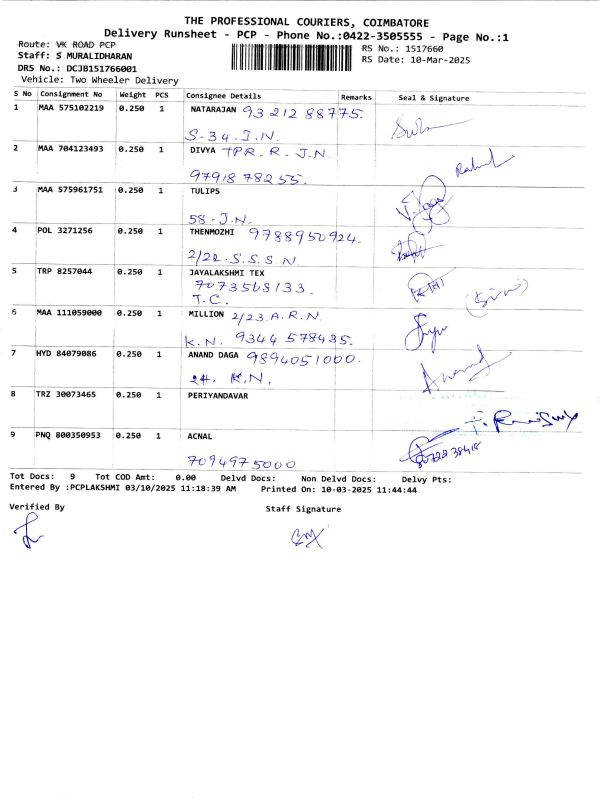 THE PROFESSIONAL COURIERS, COIMBATORE
Delivery Runsheet - PCP - Phone No.:0422-3505555 - Page No.:1
Route: VK ROAD PCP
Staff: S MURALIDHARAN
DRS No.: DCJB151766001
Vehicle: Two Wheeler Delivery
RS No.: 1517660
RS Date: 10-Mar-2025
S No Consignment No Weight PCS Consignee Details Remarks Seal & Signature
1 MAA 575102219 0.250 1 NATARAJAN 93212 88775.
S-34. I.N.
2 MAA 704123493 0.250 1 DIVYA TPR. R. J.N.
97918 78255. Rahul
3 MAA 575961751 0.250 1 TULIPS
58. J.N.
4 POL 3271256 0.250 1 THENMOZHI 9788950924.
2/22. S.S.S N.
5 TRP 8257044 0.250 1 JAYALAKSHMI TEX
7073568133.
T.C.
6 MAA 111059000 0.250 1 MILLION 2/23. A.R.N.
K.N. 9344 578435.
7 HYD 84079086 0.250 1 ANAND DAGA 9894051000.
24. K.N. Anand
8 TRZ 30073465 0.250 1 PERIYANDAVAR
9 PNQ 800350953 0.250 1 ACNAL
7094975000
Tot Docs: 9 Tot COD Amt: 0.00 Delvd Docs: Non Delvd Docs: Delvy Pts:
Entered By :PCPLAKSHMI 03/10/2025 11:18:39 AM Printed On: 10-03-2025 11:44:44
Verified By Staff Signature